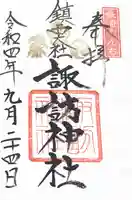 奉拝
鎮守社
諏訪神社
令和四年九月二十四日